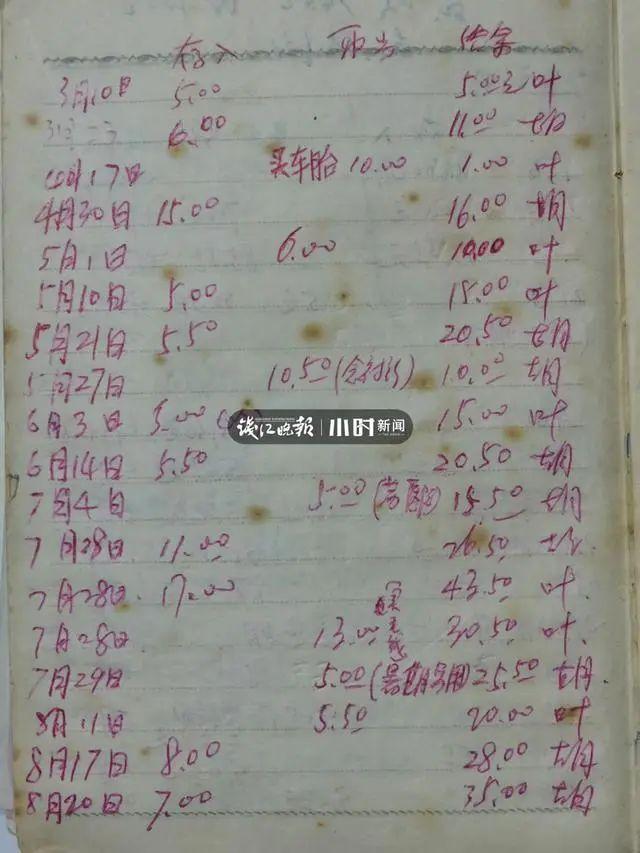 存入 取出 结余
3月10日 5.00 5.00元 叶
6.00 11.00 胡
17日 买车胎 10.00 1.00 叶
4月30日 15.00 16.00 胡
5月1日 6.00 10.00 叶
5月10日 5.00 15.00 叶
5月21日 5.50 20.50 胡
5月27日 10.50 10.00 胡
6月3日 5.00 15.00 叶
钱江晚报 小时新闻
6月14日 5.50 20.50 胡
7月4日 5.00 15.50 胡
7月28日 11.00 26.50 胡
7月28日 17.00 43.50 叶
7月28日 13.00 30.50 叶
7月29日 5.00(暑期另用) 25.50 胡
8月11日 5.50 20.00 叶
8月17日 8.00 28.00 胡
8月20日 7.00 35.00 胡